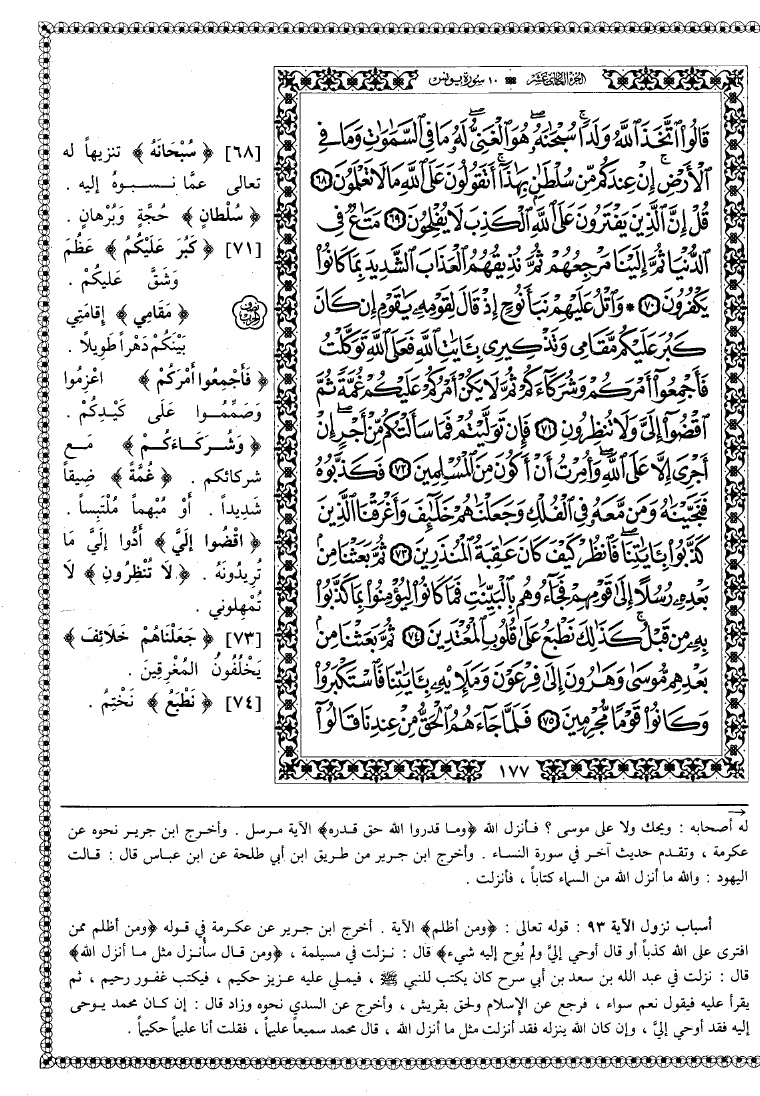 الجزء الحادي عشر ١٠ سورة يونس
قَالُوا۟ ٱتَّخَذَ ٱللَّهُ وَلَدًا ۗ سُبْحَٰنَهُۥ ۖ هُوَ ٱلْغَنِىُّ ۖ لَهُۥ مَا فِى ٱلسَّمَٰوَٰتِ وَمَا فِى
ٱلْأَرْضِ ۚ إِنْ عِندَكُم مِّن سُلْطَٰنٍۭ بِهَٰذَآ ۚ أَتَقُولُونَ عَلَى ٱللَّهِ مَا لَا تَعْلَمُونَ ٦٨
قُلْ إِنَّ ٱلَّذِينَ يَفْتَرُونَ عَلَى ٱللَّهِ ٱلْكَذِبَ لَا يُفْلِحُونَ ٦٩ مَتَٰعٌ فِى
ٱلدُّنْيَا ثُمَّ إِلَيْنَا مَرْجِعُهُمْ ثُمَّ نُذِيقُهُمُ ٱلْعَذَابَ ٱلشَّدِيدَ بِمَا كَانُوا۟
يَكْفُرُونَ ٧٠ * وَٱتْلُ عَلَيْهِمْ نَبَأَ نُوحٍ إِذْ قَالَ لِقَوْمِهِۦ يَٰقَوْمِ إِن كَانَ
كَبُرَ عَلَيْكُم مَّقَامِى وَتَذْكِيرِى بِـَٔايَٰتِ ٱللَّهِ فَعَلَى ٱللَّهِ تَوَكَّلْتُ
فَأَجْمِعُوٓا۟ أَمْرَكُمْ وَشُرَكَآءَكُمْ ثُمَّ لَا يَكُنْ أَمْرُكُمْ عَلَيْكُمْ غُمَّةً ثُمَّ
ٱقْضُوٓا۟ إِلَىَّ وَلَا تُنظِرُونِ ٧١ فَإِن تَوَلَّيْتُمْ فَمَا سَأَلْتُكُم مِّنْ أَجْرٍ ۖ إِنْ
أَجْرِىَ إِلَّا عَلَى ٱللَّهِ ۖ وَأُمِرْتُ أَنْ أَكُونَ مِنَ ٱلْمُسْلِمِينَ ٧٢ فَكَذَّبُوهُ
فَنَجَّيْنَٰهُ وَمَن مَّعَهُۥ فِى ٱلْفُلْكِ وَجَعَلْنَٰهُمْ خَلَٰٓئِفَ وَأَغْرَقْنَا ٱلَّذِينَ
كَذَّبُوا۟ بِـَٔايَٰتِنَا ۖ فَٱنظُرْ كَيْفَ كَانَ عَٰقِبَةُ ٱلْمُنذَرِينَ ٧٣ ثُمَّ بَعَثْنَا مِنۢ
بَعْدِهِۦ رُسُلًا إِلَىٰ قَوْمِهِمْ فَجَآءُوهُم بِٱلْبَيِّنَٰتِ فَمَا كَانُوا۟ لِيُؤْمِنُوا۟ بِمَا كَذَّبُوا۟
بِهِۦ مِن قَبْلُ ۚ كَذَٰلِكَ نَطْبَعُ عَلَىٰ قُلُوبِ ٱلْمُعْتَدِينَ ٧٤ ثُمَّ بَعَثْنَا مِنۢ
بَعْدِهِم مُّوسَىٰ وَهَٰرُونَ إِلَىٰ فِرْعَوْنَ وَمَلَإِي۟هِۦ بِـَٔايَٰتِنَا فَٱسْتَكْبَرُوا۟
وَكَانُوا۟ قَوْمًا مُّجْرِمِينَ ٧٥ فَلَمَّا جَآءَهُمُ ٱلْحَقُّ مِنْ عِندِنَا قَالُوٓا۟
١٧٧
[٦٨] ﴿ سُبْحَانَهُ ﴾ تنزيهاً له
تعالى عمَّا نسبوهُ إليه .
﴿ سُلْطانٍ ﴾ حُجَّةٍ وَبُرْهانٍ .
[٧١] ﴿ كَبُرَ عَلَيْكُمْ ﴾ عَظُمَ
وَشَقَّ عليكُمْ .
﴿ مَقَامِي ﴾ إقامَتِي
بَيْنَكُمْ دَهْراً طَويلاً .
﴿ فَأَجْمِعُوا أَمْرَكُمْ ﴾ اعْزِمُوا
وَصَمِّمُوا عَلَى كَيْدِكُمْ .
﴿ وَشُرَكَاءَكُمْ ﴾ مَع
شركائكم . ﴿ غُمَّةً ﴾ ضِيقاً
شَدِيداً . أوْ مُبْهماً مُلْتَبِساً .
﴿ اقْضُوا إلَيَّ ﴾ أَدُّوا إلَيَّ مَا
تُرِيدُونَهُ . ﴿ لَا تُنْظِرُونِ ﴾ لَا
تُمْهِلوني .
[٧٣] ﴿ جَعَلْنَاهُمْ خَلَائِفَ ﴾
يَخْلُفُونُ المُغْرِقِينَ .
[٧٤] ﴿ نَطْبَعُ ﴾ نَخْتِمُ .
له أصحابه : ويحك ولا على موسى ؟ فأنزل الله ﴿وما قدروا الله حق قدره﴾ الآية مرسل . وأخرج ابن جرير نحوه عن
عكرمة ، وتقدم حديث آخر في سورة النساء . وأخرج ابن جرير من طريق ابن أبي طلحة عن ابن عباس قال : قالت
اليهود : والله ما أنزل الله من السماء كتاباً ، فأنزلت .
أسباب نزول الآية ٩٣ : قوله تعالى : ﴿ومن أظلم﴾ الآية . أخرج ابن جرير عن عكرمة في قوله ﴿ومن أظلم ممن
افترى على الله كذباً أو قال أوحي إليَّ ولم يُوح إليه شيء﴾ قال : نزلت في مسيلمة ، ﴿ومن قال سأُنزل مثل ما أنزل الله﴾
قال : نزلت في عبد الله بن سعد بن أبي سرح كان يكتب للنبي ﷺ ، فيملي عليه عزيز حكيم ، فيكتب غفور رحيم ، ثم
يقرأ عليه فيقول نعم سواء ، فرجع عن الإسلام ولحق بقريش ، وأخرج عن السدي نحوه وزاد قال : إن كان محمد يوحى
إليه فقد أوحي إليَّ ، وإن كان الله ينزله فقد أنزلت مثل ما أنزل الله ، قال محمد سميعاً عليماً ، فقلت أنا عليماً حكيماً .